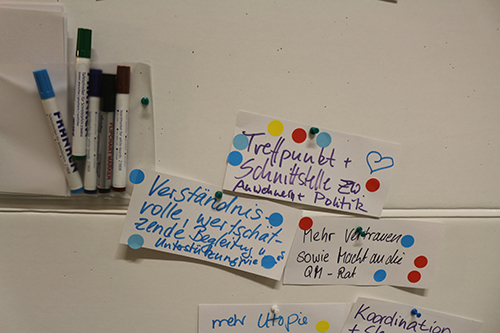 Treffpunkt +
Schnittstelle zu
Anwohnern + Politik
Verständnis-
volle, wertschät-
zende "Begleitung"
Mehr Vertrauen
sowie Macht an die
QM - Rat
mehr Utopie
Koordination